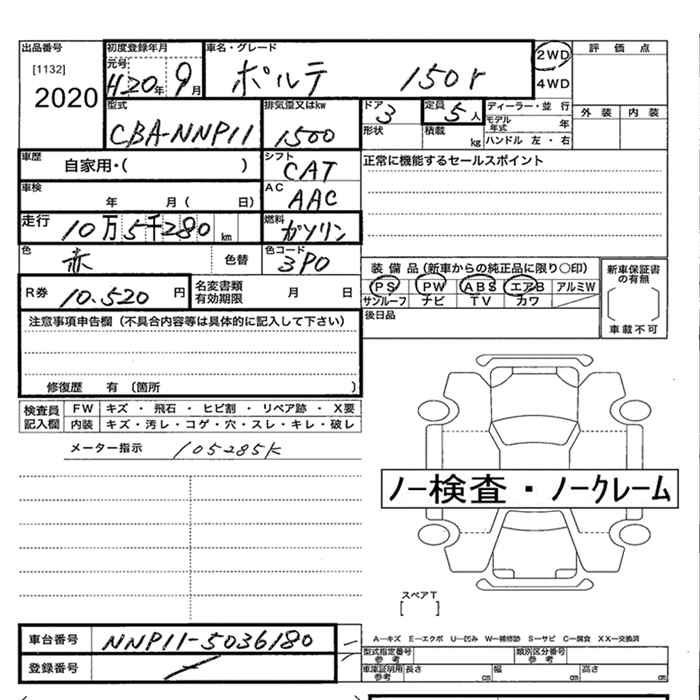 出品番号 初度登録年月 車名・グレード 評価点
[1132] 元号 2WD
2020 H20年 9月 ポルテ 150r 4WD
外装 内装
型式 排気量又はkw ドア 定員 ディーラー・並行
CBA-NNP11 1500 3 5人 モデル年式 年
形状 積載 kg ハンドル 左・右
車歴 自家用・( ) シフト CAT 正常に機能するセールスポイント
車検 年 月( 日) AC AAC
走行 10万5千280km 燃料 ガソリン
色 赤 色替 色コード 3P0
装備品(新車からの純正品に限り○印) 新車保証書の有無
R券 10.520円 名変書類有効期限 月 日 PS PW ABS エアB アルミW
サンルーフ ナビ TV カワ
後日品 車載不可
注意事項申告欄(不具合内容等は具体的に記入して下さい)
修復歴 有(箇所 )
検査員記入欄 FW キズ・飛石・ヒビ割・リペア跡・X要
内装 キズ・汚レ・コゲ・穴・スレ・キレ・破レ
メーター指示 105285K
ノー検査・ノークレーム
スペアT
[ ]
車台番号 NNP11-5036180 A―キズ E―エクボ U―凹み W―補修跡 S―サビ C―腐食 XX―交換済
型式指定番号 参考 類別区分番号 参考
登録番号 車庫証明用 参考 長さ cm 幅 cm 高さ cm